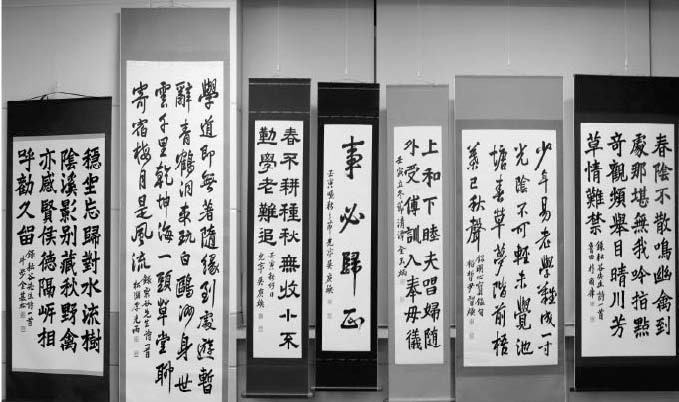 春陰不散鳴幽禽到
處那堪無我吟指點
奇觀頻舉目晴川芳
草情難禁
少年易老學難成一寸
光陰不可輕未覺池
塘春草夢階前梧
葉已秋聲
上和下睦夫唱婦隨
外受傅訓入奉母儀
事必歸正
春不耕種秋無收小不
勤學老難追
學道即無著隨緣到處遊暫
辭青鶴洞來玩白鷗洲身世
雲千里乾坤海一頭草堂聊
寄宿梅月是風流
穩坐忘歸對水流樹
陰溪影別藏秋野禽
亦感賢侯德隔岸相
呼勸久留